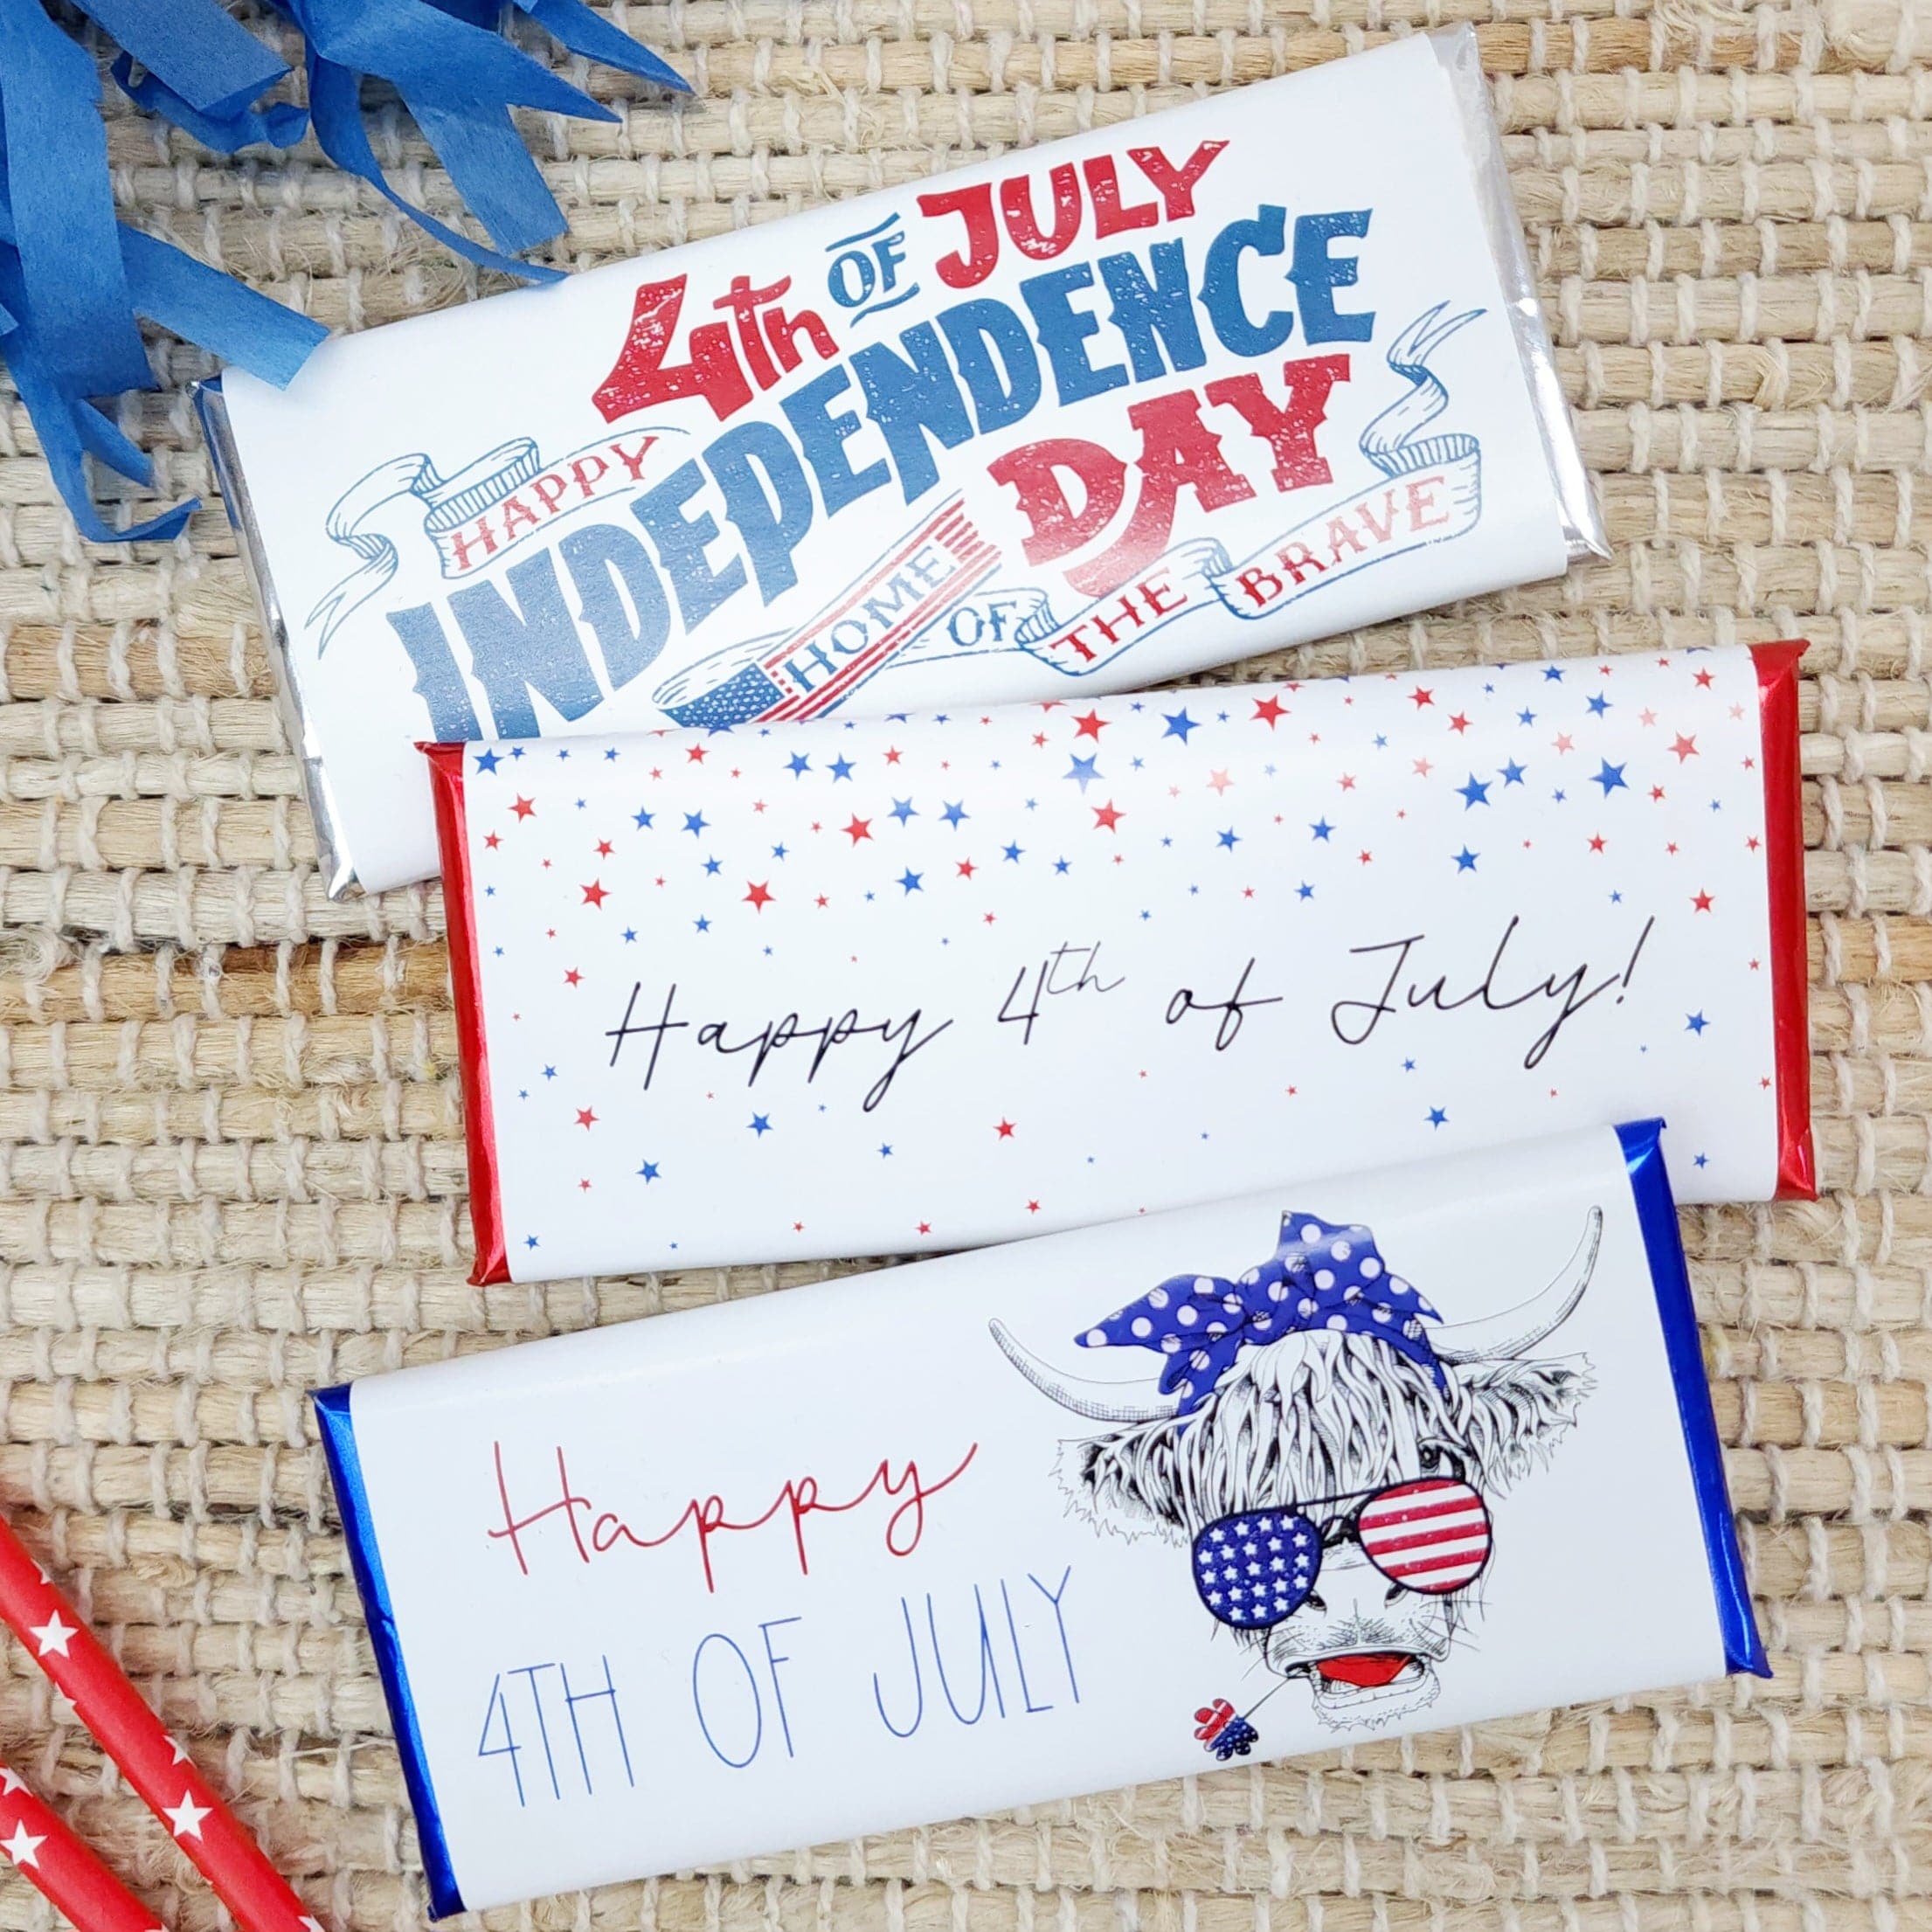 4th OF JULY
HAPPY
INDEPENDENCE
DAY
HOME OF THE BRAVE
Happy 4th of July!
Happy
4TH OF JULY